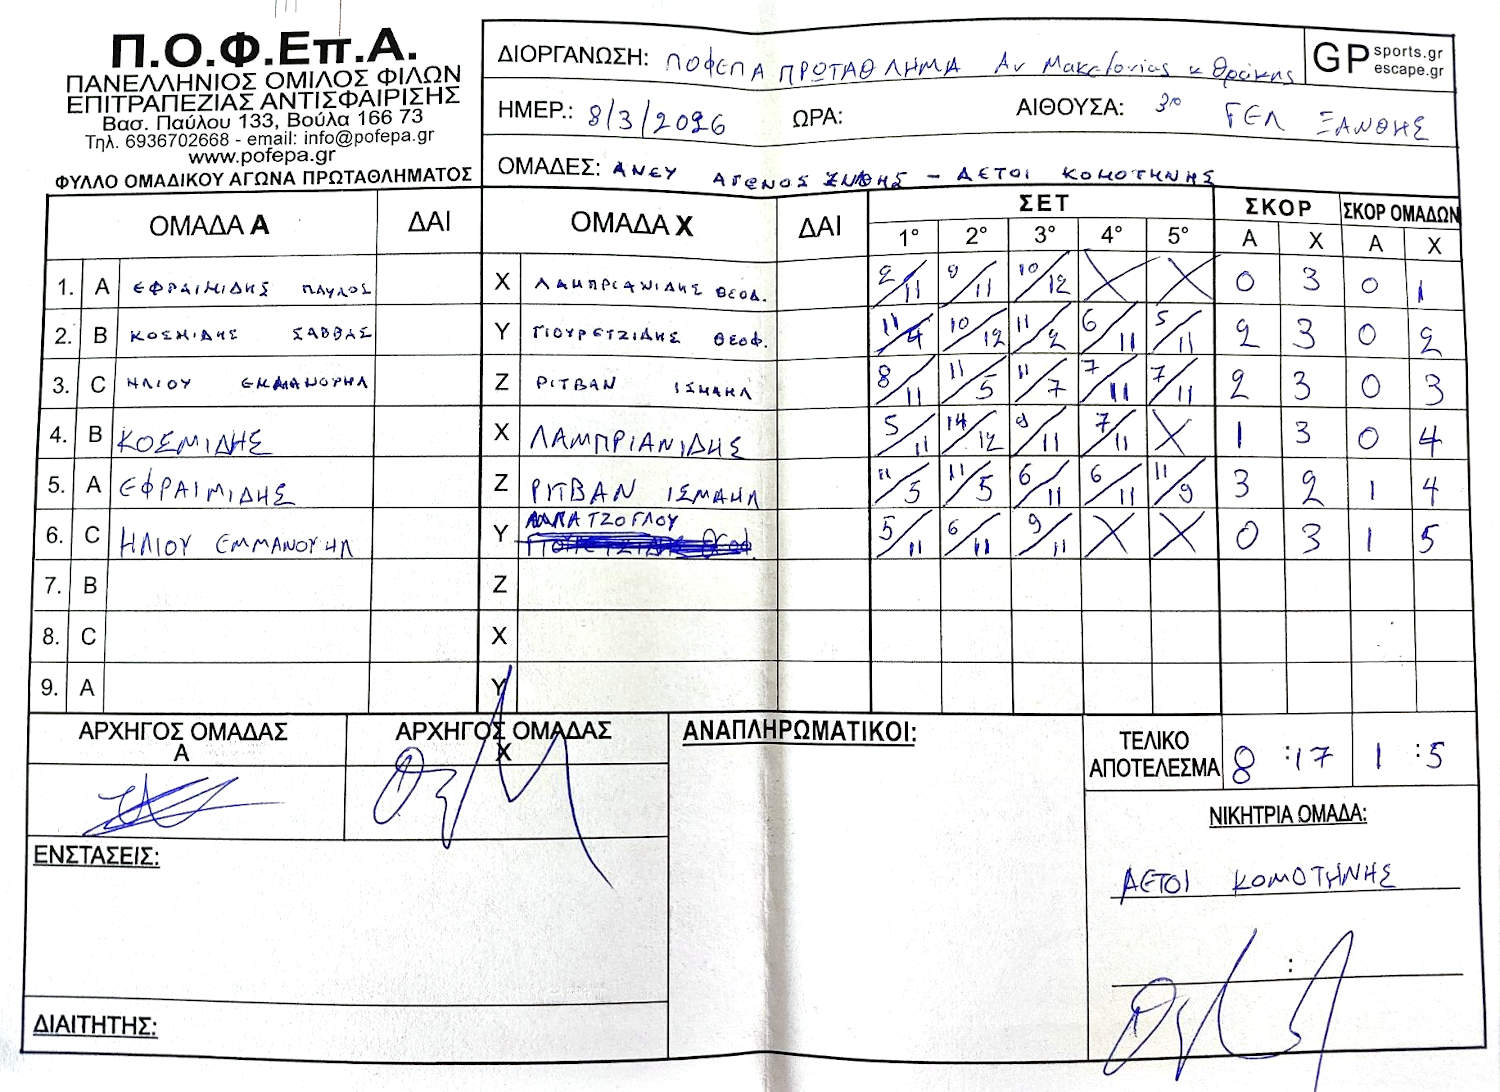 Π.Ο.Φ.Επ.Α.
ΠΑΝΕΛΛΗΝΙΟΣ ΟΜΙΛΟΣ ΦΙΛΩΝ
ΕΠΙΤΡΑΠΕΖΙΑΣ ΑΝΤΙΣΦΑΙΡΙΣΗΣ
Βασ. Παύλου 133, Βούλα 166 73
Τηλ. 6936702668 - email: info@pofepa.gr
www.pofepa.gr
ΦΥΛΛΟ ΟΜΑΔΙΚΟΥ ΑΓΩΝΑ ΠΡΩΤΑΘΛΗΜΑΤΟΣ
ΔΙΟΡΓΑΝΩΣΗ: ΠΟΦΕΠΑ ΠΡΩΤΑΘΛΗΜΑ Αν Μακεδονίας κ Θράκης
GP sports.gr
escape.gr
ΗΜΕΡ.: 8/3/2026 ΩΡΑ: ΑΙΘΟΥΣΑ: 3ο ΓΕΛ ΞΑΝΘΗΣ
ΟΜΑΔΕΣ: ΑΝΕΥ ΑΓΩΝΟΣ ΞΝΘΗΣ - ΑΕΤΟΙ ΚΟΜΟΤΗΝΗΣ
ΟΜΑΔΑ Α ΔΑΙ ΟΜΑΔΑ Χ ΔΑΙ ΣΕΤ ΣΚΟΡ ΣΚΟΡ ΟΜΑΔΩΝ
1° 2° 3° 4° 5° Α Χ Α Χ
1. A ΕΦΡΑΙΜΙΔΗΣ ΠΑΥΛΟΣ X ΛΑΜΠΡΙΑΝΙΔΗΣ ΘΕΟΔ. 2/11 9/11 10/12 X X 0 3 0 1
2. B ΚΟΣΜΙΔΗΣ ΣΑΒΒΑΣ Y ΓΙΟΥΡΕΤΖΙΔΗΣ ΘΕΟΦ. 11/4 10/12 11/2 6/11 5/11 2 3 0 2
3. C ΗΛΙΟΥ ΕΜΜΑΝΟΥΗΛ Z ΡΙΤΒΑΝ ΙΣΜΑΗΛ 8/11 11/5 11/7 7/11 7/11 2 3 0 3
4. B ΚΟΣΜΙΔΗΣ X ΛΑΜΠΡΙΑΝΙΔΗΣ 5/11 14/12 9/11 7/11 X 1 3 0 4
5. A ΕΦΡΑΙΜΙΔΗΣ Z ΡΙΤΒΑΝ ΙΣΜΑΗΛ 11/5 11/5 6/11 6/11 11/9 3 2 1 4
6. C ΗΛΙΟΥ ΕΜΜΑΝΟΥΗΛ Y 5/11 6/11 9/11 X X 0 3 1 5
7. B Z
8. C X
9. A Y
ΑΡΧΗΓΟΣ ΟΜΑΔΑΣ Α ΑΡΧΗΓΟΣ ΟΜΑΔΑΣ Χ ΑΝΑΠΛΗΡΩΜΑΤΙΚΟΙ: ΤΕΛΙΚΟ ΑΠΟΤΕΛΕΣΜΑ 8 :17 1 :5
ΝΙΚΗΤΡΙΑ ΟΜΑΔΑ:
ΕΝΣΤΑΣΕΙΣ:
ΑΕΤΟΙ ΚΟΜΟΤΗΝΗΣ
:
ΔΙΑΙΤΗΤΗΣ: